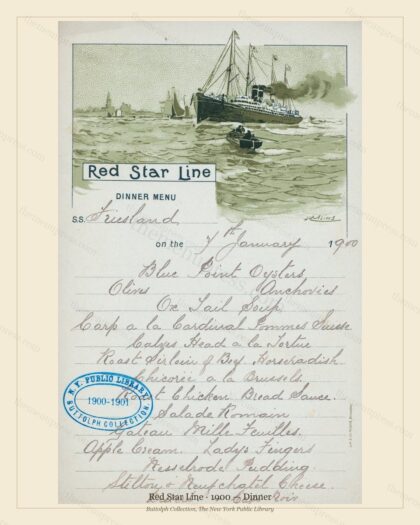 Red Star Line
DINNER MENU
S.S. Friesland
on the 7th January 1900
Blue Point Oysters
Olives Anchovies
Ox Tail Soup
Carp a la Cardinal Pommes Suisse
Calves Head a la Tortue
Roast Sirloin of Beef Horseradish
Chicorée a la Bruxells.
Roast Chicken Bread Sauce.
Salade Romain
Gateau Mille Feuilles.
Apple Cream. Lady's Fingers
Nesselrode Pudding
Stelton & Neufchatel Cheese.
N.Y. PUBLIC LIBRARY
1900-1901
BUTTOLPH COLLECTION
Red Star Line - 1900 - Dinner
Buttolph Collection, The New York Public Library